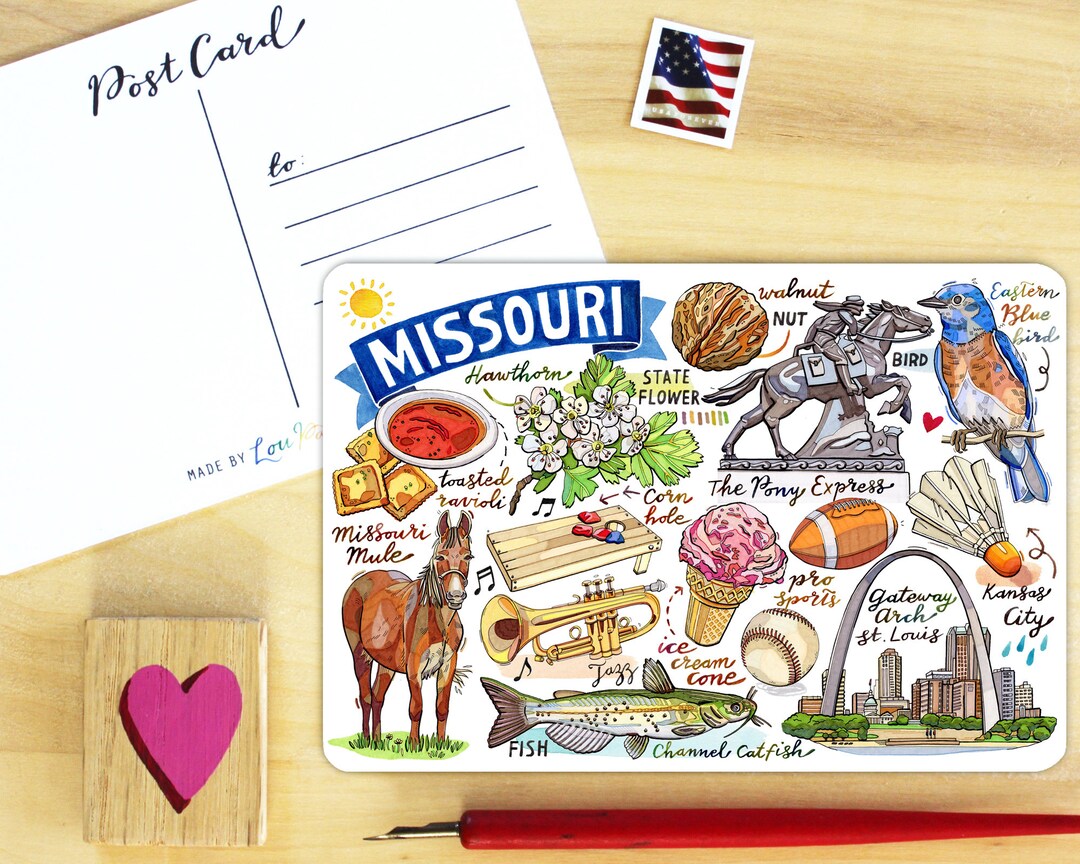 Post Card
to:
MADE BY Lou
MISSOURI
walnut
NUT
Eastern
Blue
bird
BIRD
Hawthorn
STATE
FLOWER
toasted
ravioli
Corn
hole
The Pony Express
Missouri
Mule
pro
sports
Kansas
City
Gateway
Arch
St. Louis
ice
cream
cone
Jazz
FISH
Channel Catfish